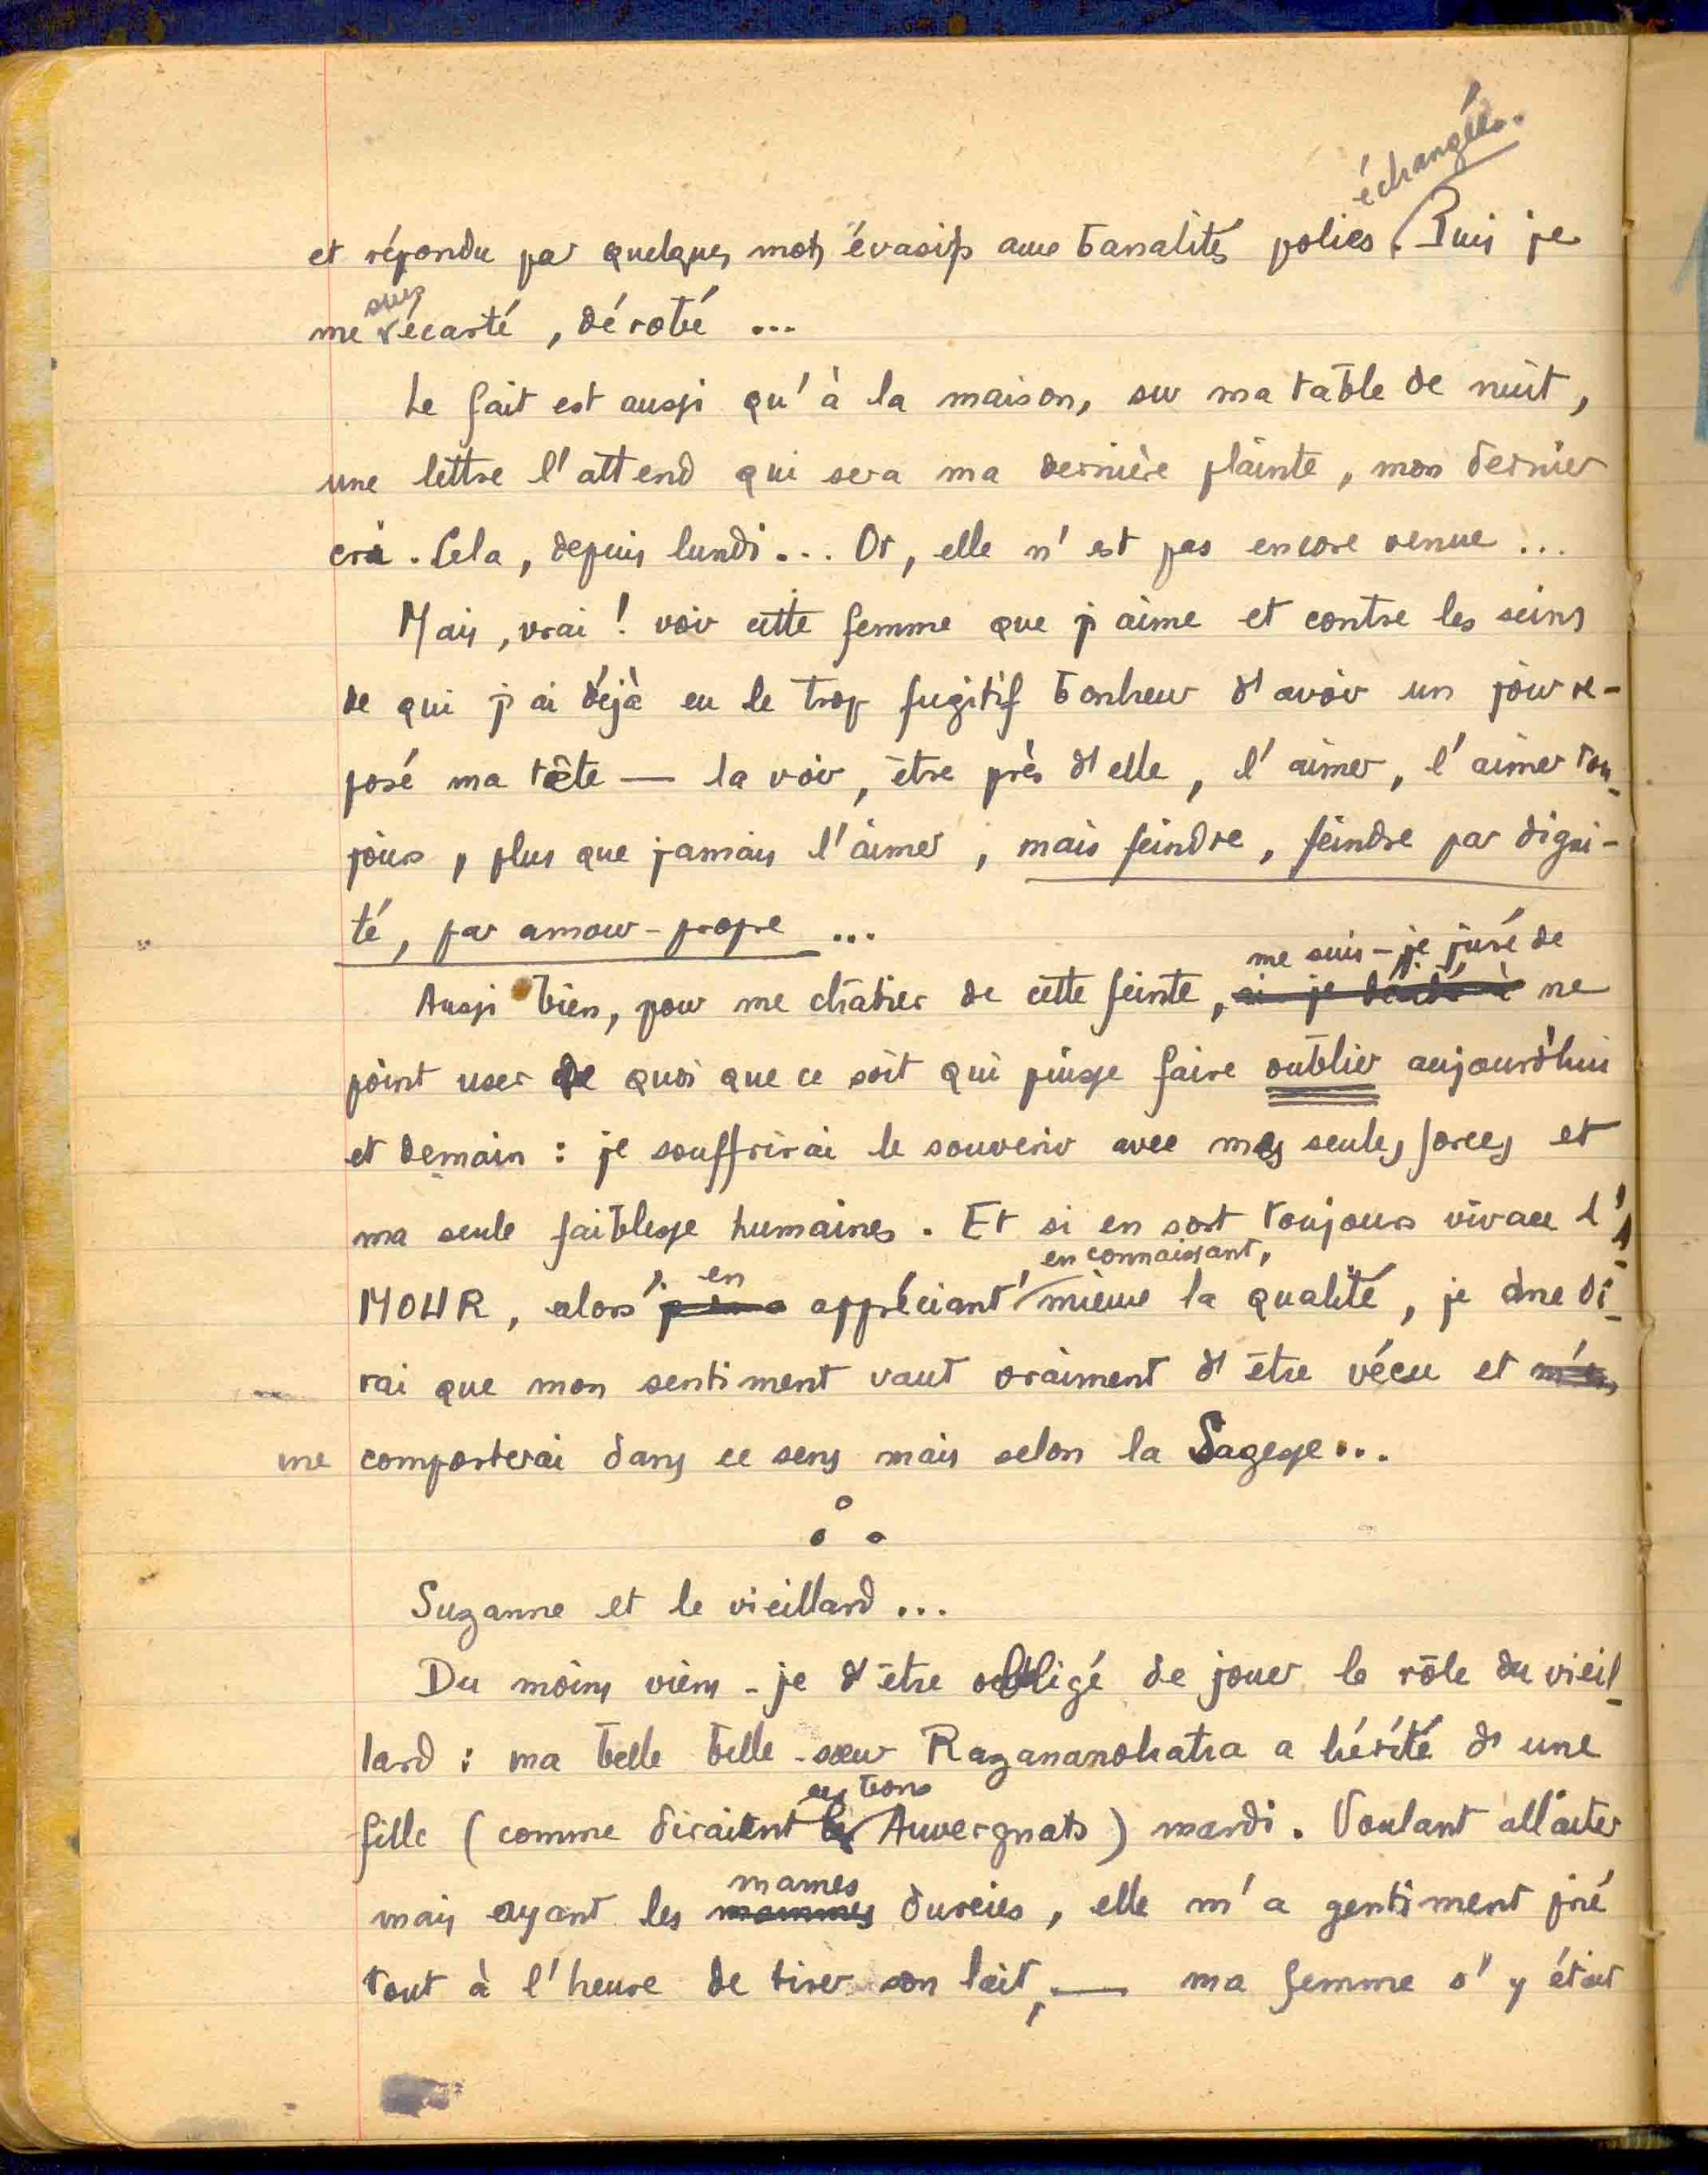 échangées.
et répondu par quelques mots évasifs aux banalités polies. Puis je
suis
me écarté, dérobé ...
Le fait est aussi qu'à la maison, sur ma table de nuit,
une lettre l'attend qui sera ma dernière plainte, mon dernier
cri. Cela, depuis lundi... Or, elle n'est pas encore venue ...
Mais, vrai! voir cette femme que j'aime et contre les seins
de qui j'ai déjà eu le trop fugitif bonheur d'avoir un jour re-
posé ma tête — la voir, être près d'elle, l'aimer, l'aimer tou-
jours, plus que jamais l'aimer, mais feindre, feindre par digni-
té, par amour-propre ...
me suis-je juré de
Aussi bien, pour me châtier de cette feinte, ai-je décidé à ne
point user de quoi que ce soit qui puisse faire oublier aujourd'hui
et demain : je souffrirai le souvenir avec mes seules forces et
ma seule faiblesse humaines. Et si en sort toujours vivace l'A-
en en connaissant,
MOUR, alors, appréciant, mieux la qualité, je me di-
rai que mon sentiment vaut vraiment d'être vécu et m'en
me comporterai dans ce sens mais selon la Sagesse...
Suzanne et le vieillard ...
Du moins viens-je d'être obligé de jouer le rôle du vieil-
lard : ma belle belle-sœur Razananohatra a hérité d'une
ces bons
fille (comme diraient les Auvergnats) mardi. Voulant allaiter
mames
mais ayant les mammes durcies, elle m'a gentiment prié
tout à l'heure de tirer son lait, — ma femme s'y était